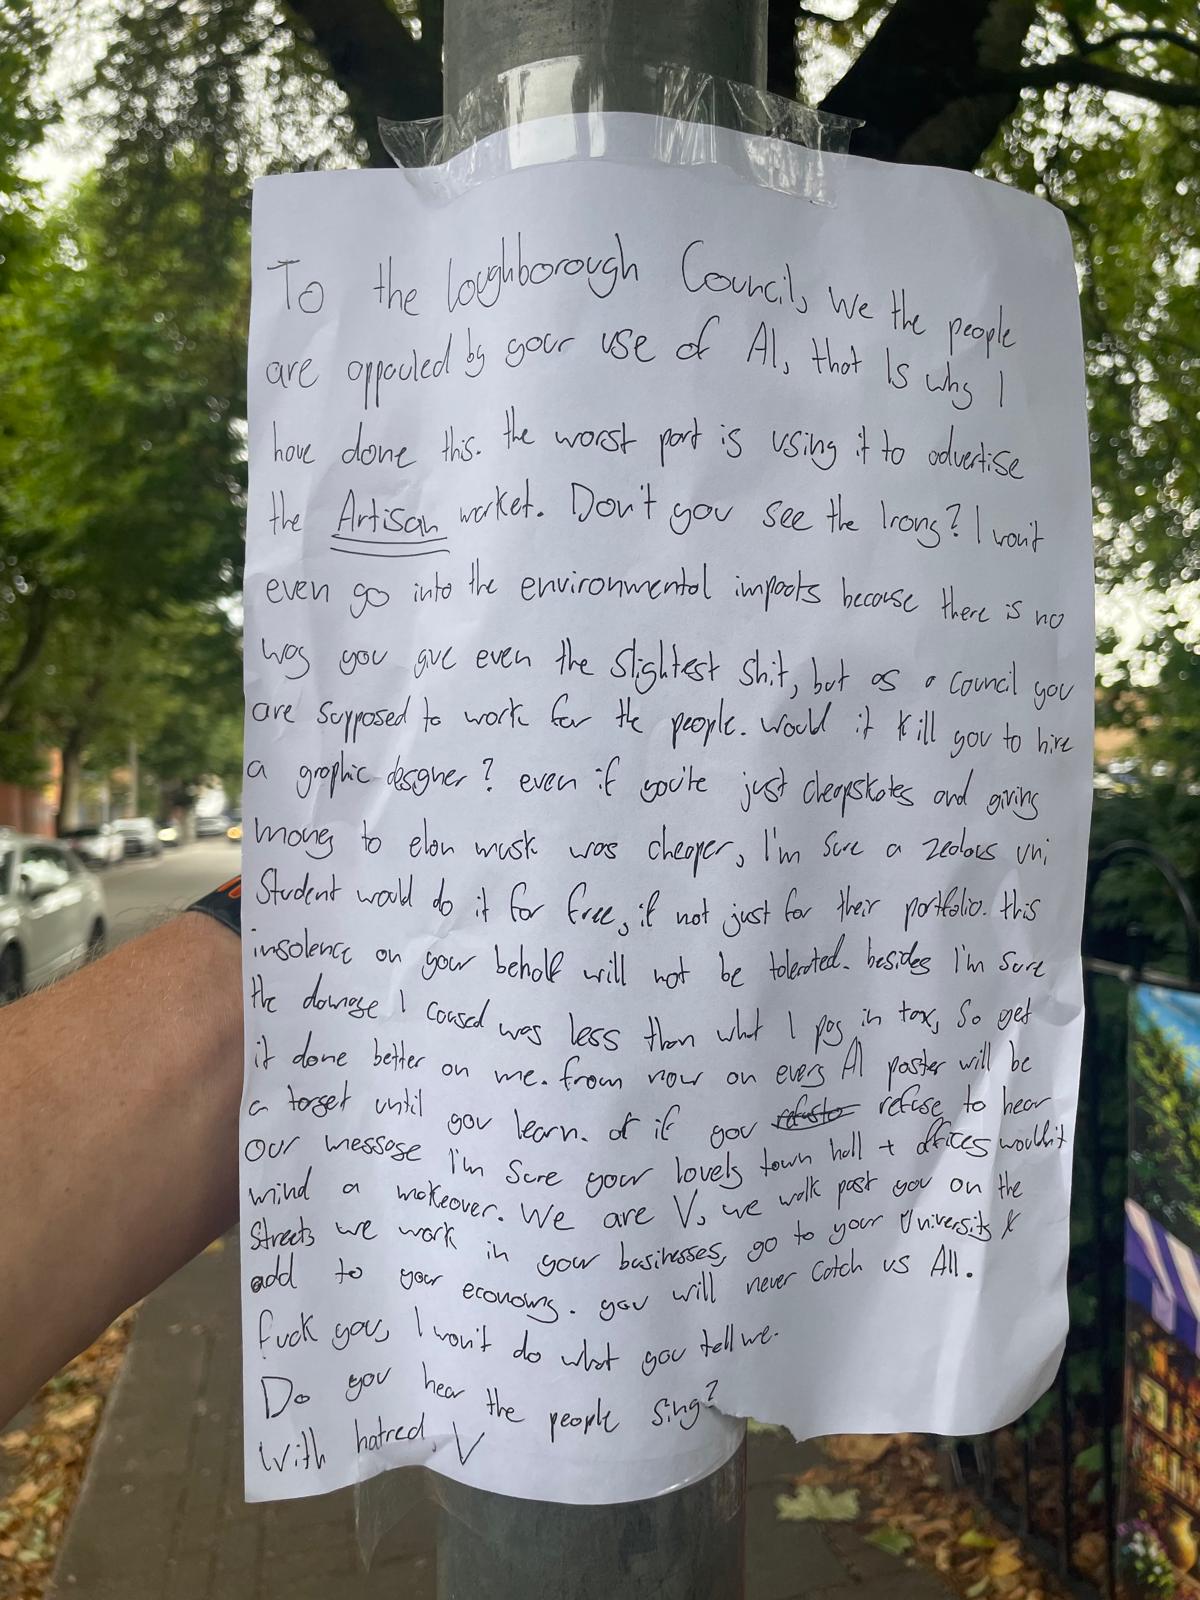 To the loughborough Council, we the people
are appauled by your use of AI, that Is why I
have done this. the worst part is using it to advertise
the Artisan market. Don't you see the Irony? I won't
even go into the environmental impacts because there is no
way you give even the slightest shit, but as a council you
are supposed to work for the people. would it kill you to hire
a graphic desgner? even if you're just cheapskates and giving
money to elon musk was cheaper, I'm sure a zealous uni
Student would do it for free, if not just for their portfolio. this
insolence on your behalf will not be tolerated. besides I'm sure
the damage I caused was less than what I pay in tax, So get
it done better on me. from now on every AI poster will be
a target until you learn. or if you refuse to hear
our message I'm sure your lovely town hall + offices wouldn't
mind a makeover. We are V, we walk past you on the
streets we work in your businesses, go to your University &
add to your economy. you will never catch us All.
fuck you, I won't do what you tell me.
Do you hear the people sing?
With hatred, V